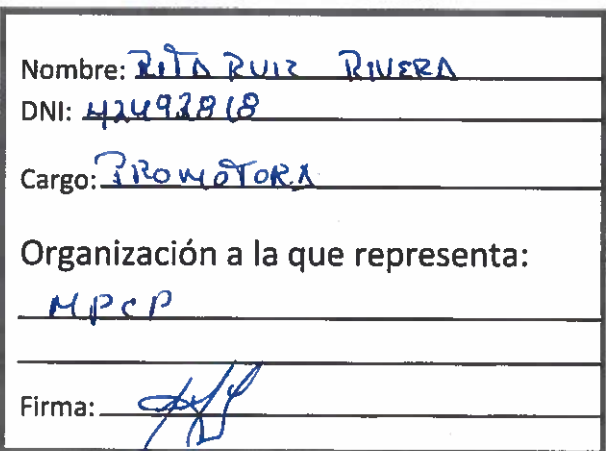 Nombre: RITA RUIZ RIVERA
DNI: 42492818
Cargo: PROMOTORA
Organización a la que representa:
MPCP
Firma: